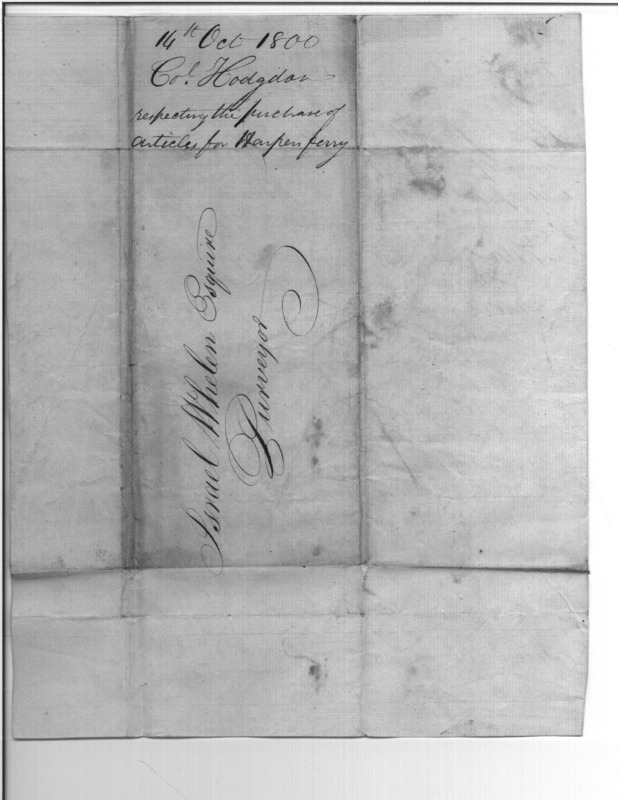 14th Oct 1800
Col. Hodgdon
respecting the purchase of
articles for Harpers ferry
Israel Whelen Esquire
Purveyor